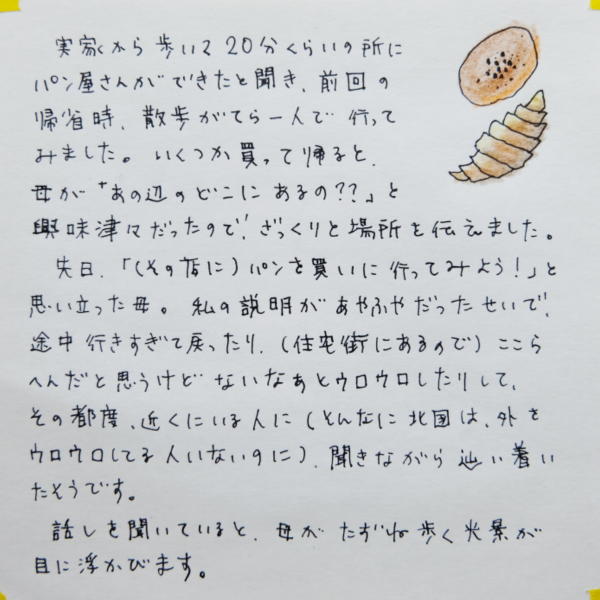 実家から歩いて20分くらいの所に
パン屋さんができたと聞き、前回の
帰省時、散歩がてら一人で行って
みました。いくつか買って帰ると、
母が「あの辺のどこにあるの??」と
興味津々だったので、ざっくりと場所を伝えました。
先日、「(その店に)パンを買いに行ってみよう!」と
思い立った母。私の説明があやふやだったせいで、
途中行きすぎて戻ったり、(住宅街にあるので)ここら
へんだと思うけどないなぁとウロウロしたりして、
その都度、近くにいる人に(そんなに北国は、外を
ウロウロしてる人いないのに)、聞きながら辿い着い
たそうです。
話しを聞いていると、母がたずね歩く光景が
目に浮かびます。